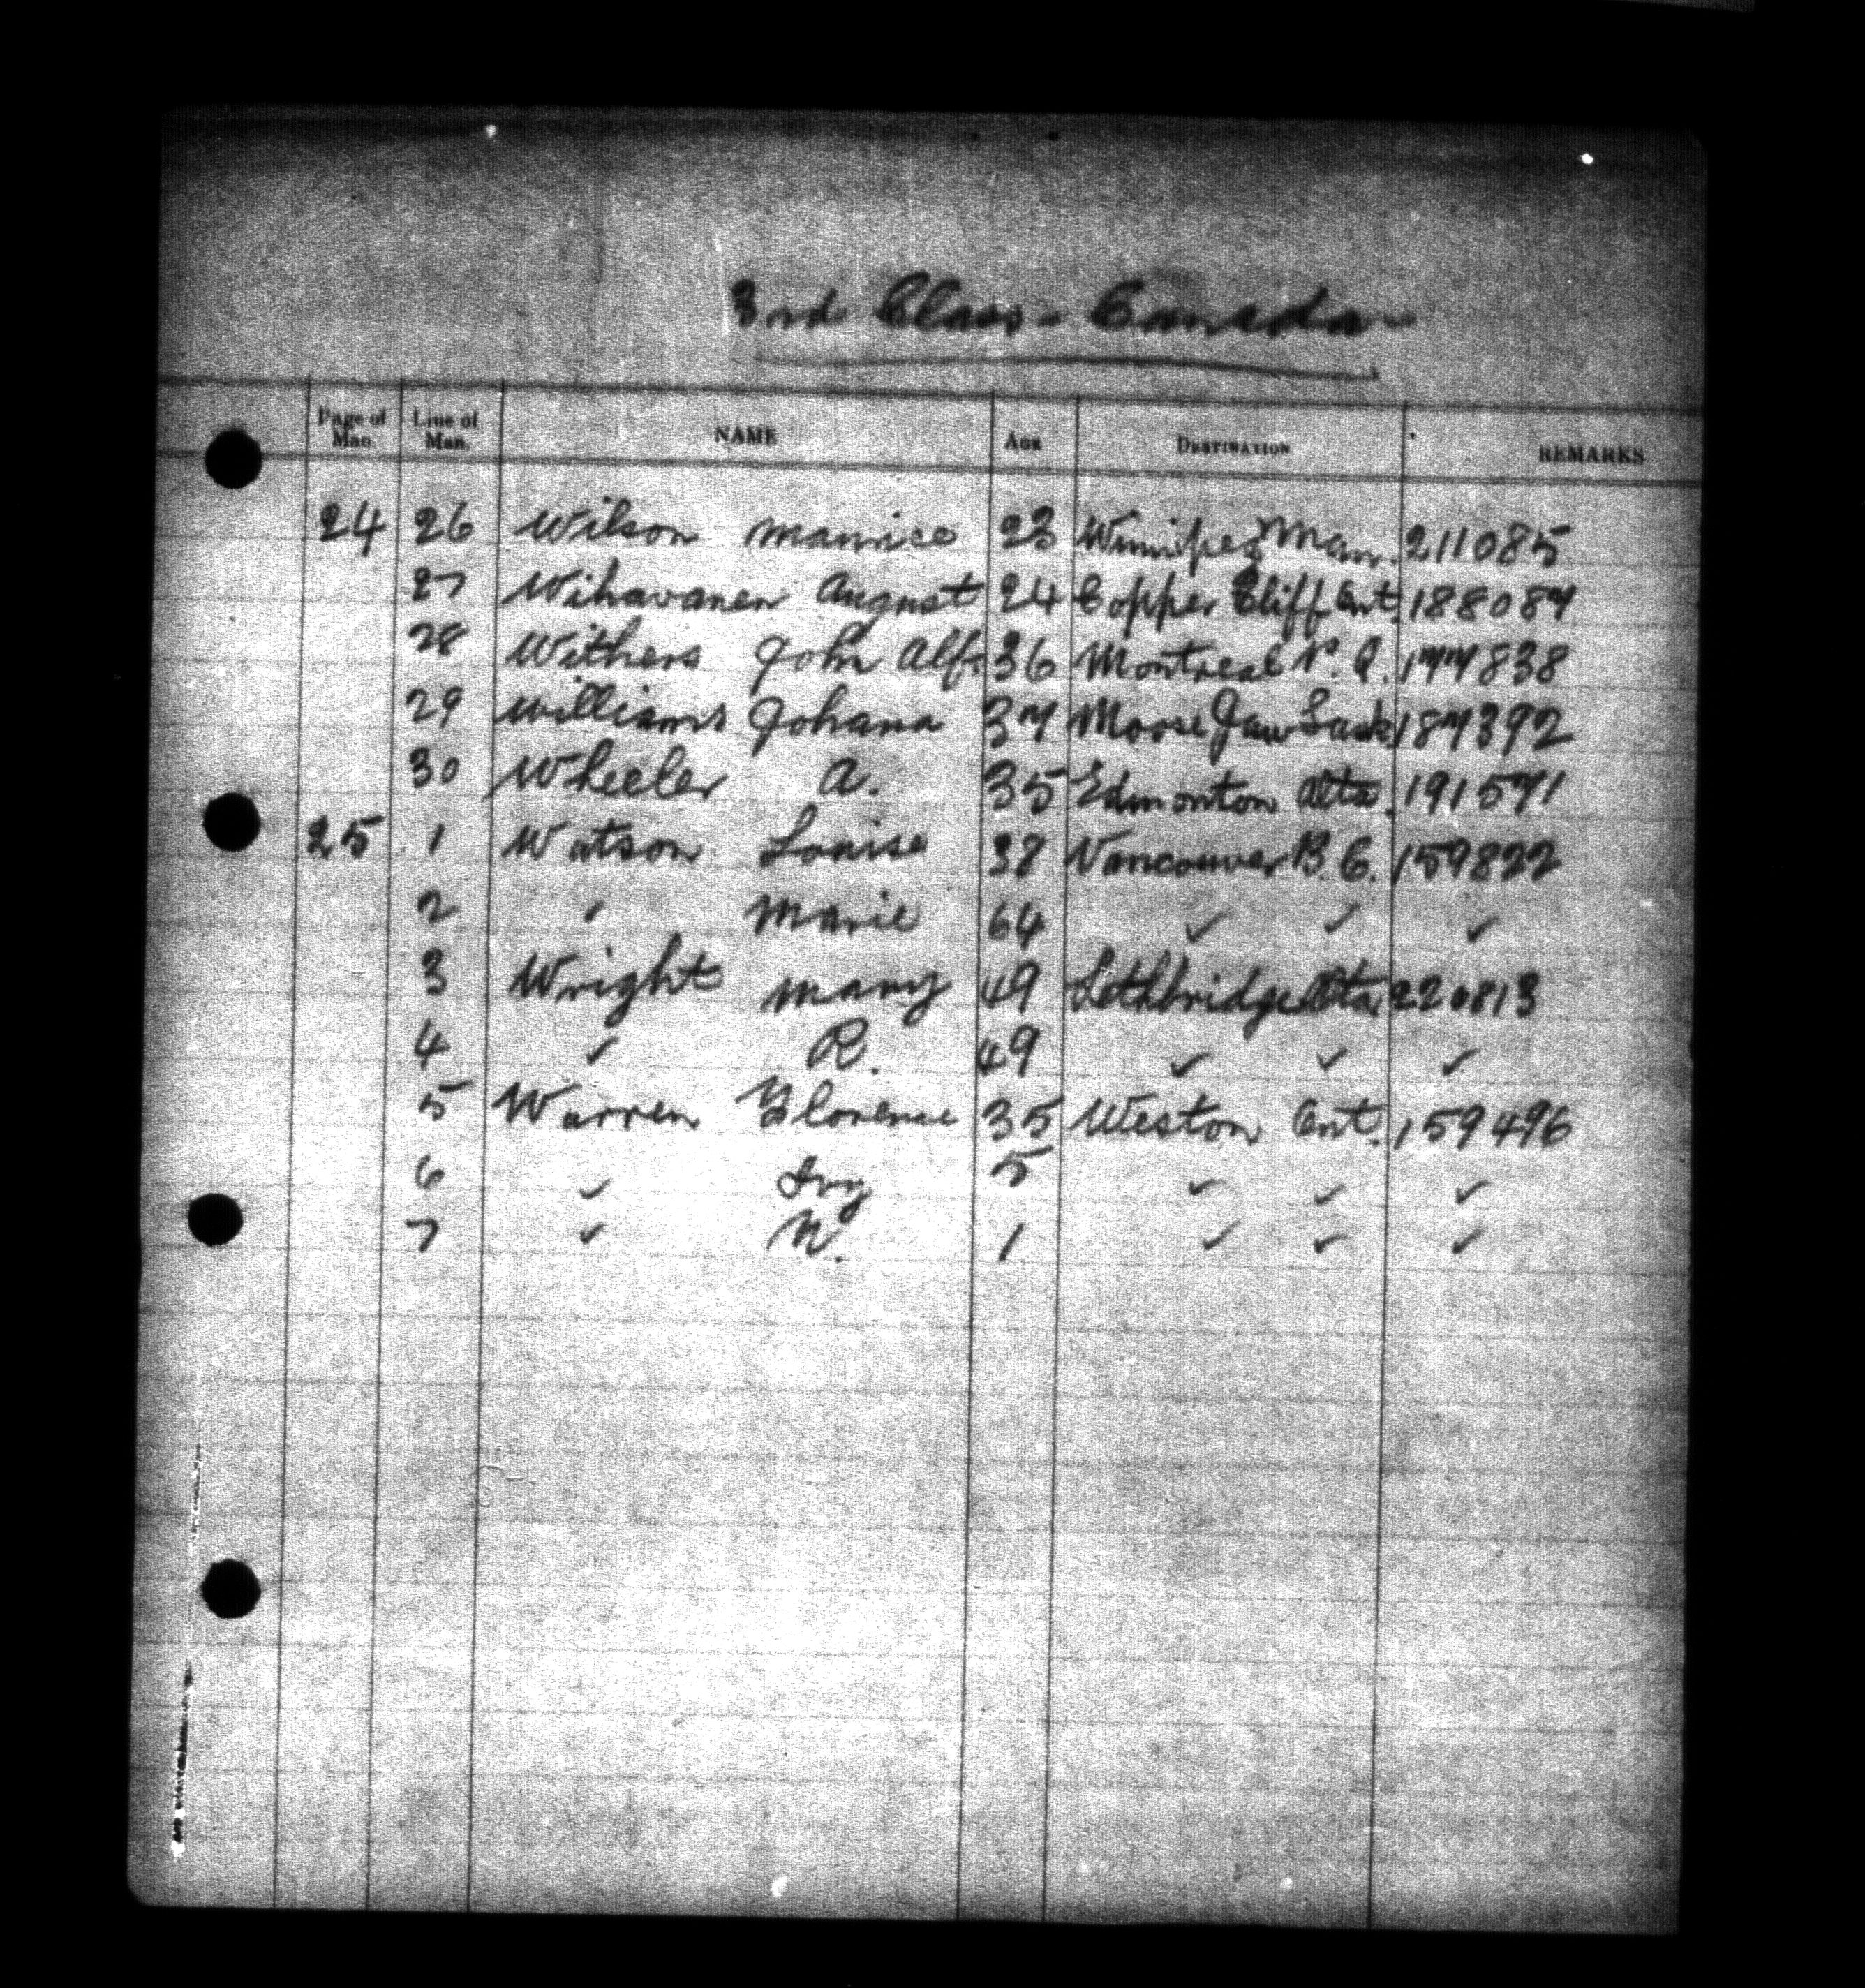 3rd Class - Canada
Page of Man. Line of Man. NAME AGE DESTINATION REMARKS
24 26 Wilson Maurice 23 Winnipeg Man. 211085
27 Wihavanen August 24 Copper Cliff Ont. 188087
28 Withers John Alf. 36 Montreal P.Q. 177838
29 Williams Johana 37 Moose Jaw Sask. 187392
30 Wheeler A. 35 Edmonton Alta. 191571
25 1 Watson Louise 38 Vancouver B.C. 159822
2 " Marie 64 ✓ ✓ ✓
3 Wright Mary 49 Lethbridge Alta. 220813
4 ✓ R. 49 ✓ ✓ ✓
5 Warren Florence 35 Weston Ont. 159496
6 ✓ Ivy 5 ✓ ✓ ✓
7 ✓ N. 1 ✓ ✓ ✓